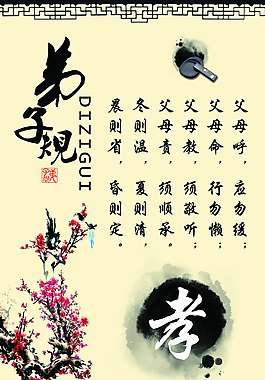 弟子规
DIZIGUI
父母呼，应勿缓；
父母命，行勿懒；
父母教，须敬听；
父母责，须顺承。
冬则温，夏则清，
晨则省，昏则定。
孝